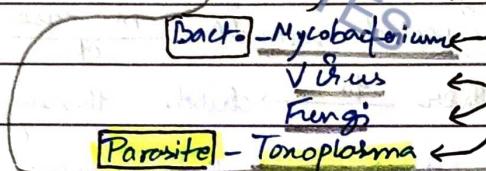 Bact. - Mycobacterium
Virus
Fungi
Parasite - Toxoplasma